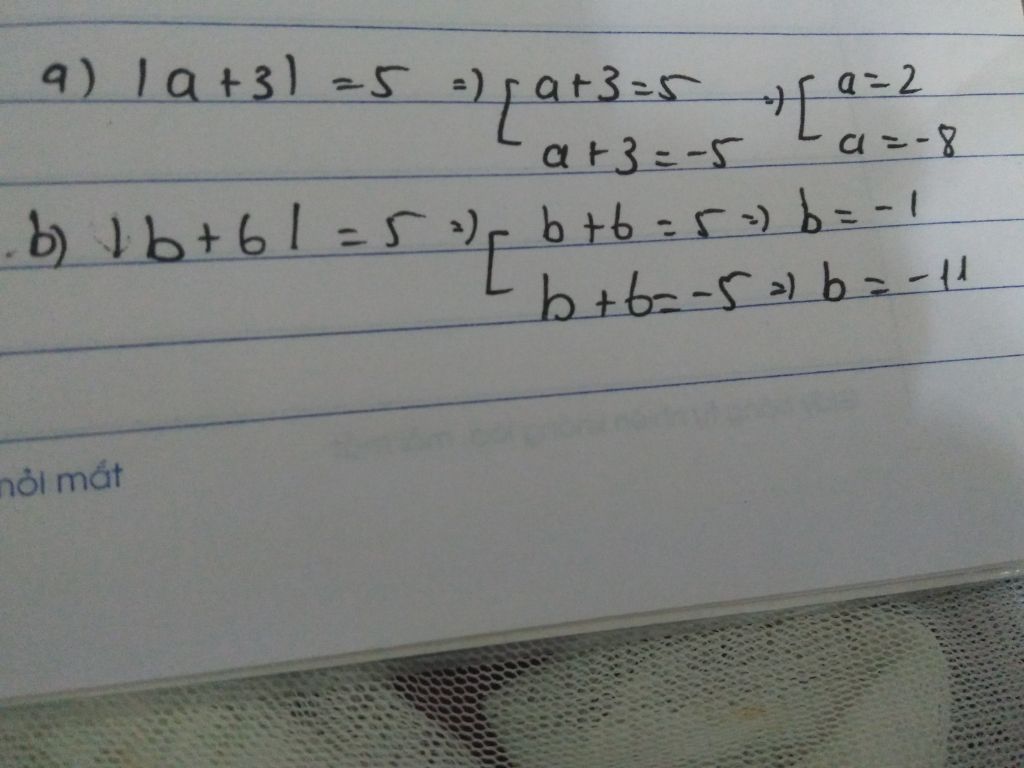 a) |a+3| = 5 => [ a+3=5 => [ a=2
a+3=-5 a=-8
b) |b+6| = 5 => [ b+6 = 5 => b = -1
b+6=-5 => b = -11
nỏi mắt